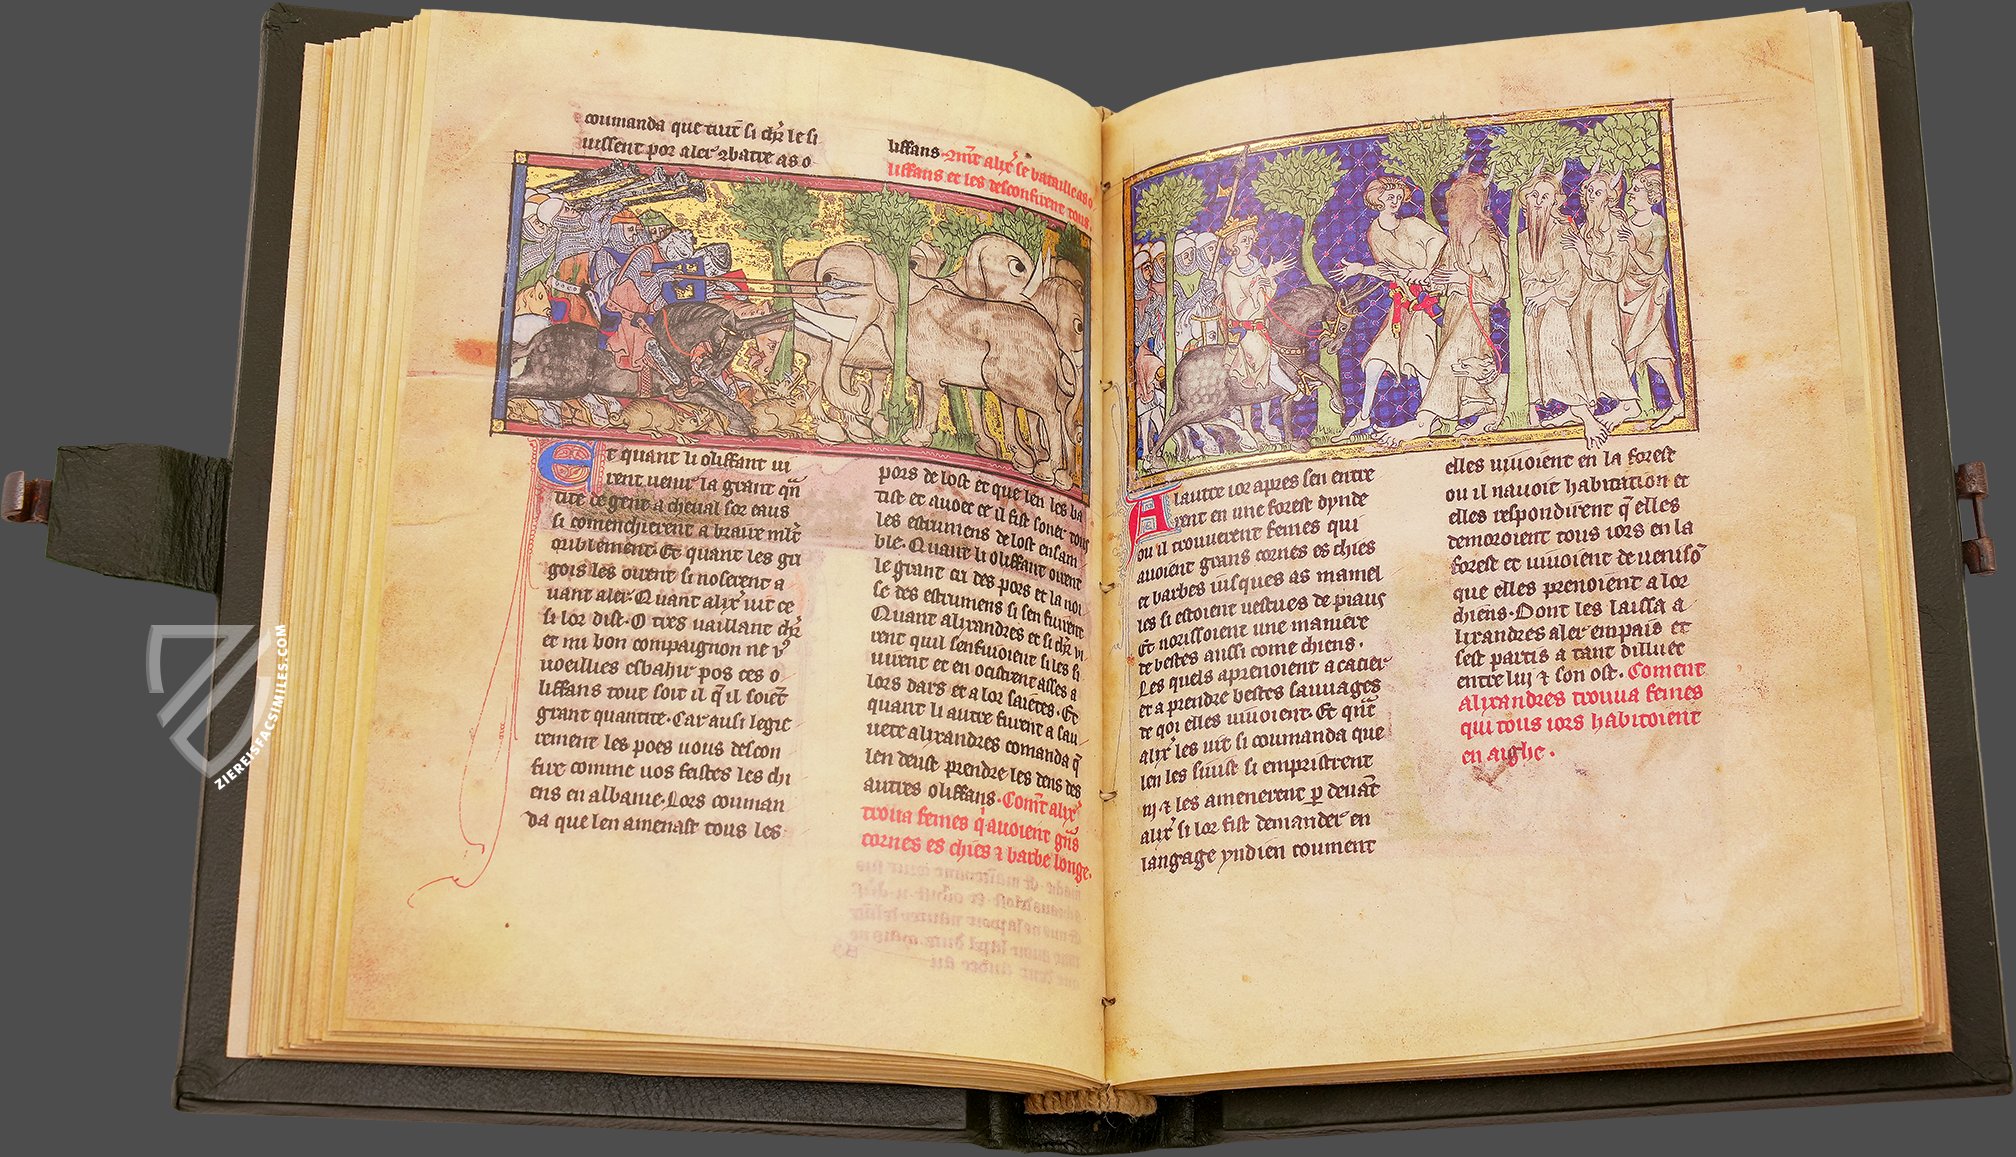 coumanda que tuit si chr̄ le si
uissent por aler ꝯbatre as o
liffans. Cōmt alix̄ se bataille as o
liffans et les desconfirent tous.
Et quant li oliffant ui
rent uenir la grant qñ
tite de gent a cheual sor eaus
si comenchierent a braire mlt̄
oriblement. Et quant les gri
gois les oirent si noserent a
uant aler. Quant alix̄ uit ce
si lor dist. O tres uaillant chr̄
et mi bon compaignon ne v9
uoeillies esbahir pos ces o
liffans tout soit il q̄ il soiēt
grant quantite. Car ausi legie
rement les poes uous descon
fire comme uos feistes les chi
ens en albanie. Lors couman
da que len amenast tous les
pors de lost et que len les ba
tist et auoec ce il fist soner tous
les estrumens de lost ensam
ble. Quant li oliffant oirent
le grant cri des pors et la noi
se des estrumens si sen fuirent
Quant alixandres et si chr̄ vi
rent quil senfuioient si les si
uirent et en ocistrent asses a
lors dars et a lor saietes. Et
quant li autre furent a sau
uete alixandres comanda q̄
len deust prendre les dens des
autres oliffans. Comt̄ alix̄
troua femes q̄ auoient grās
cornes es chies ⁊ barbe longe.
A lautre ior apres sen entre
rent en une forest dynde
ou il trouuerent femes qui
auoient grans cornes es chies
et barbes iusques as mamel
les si estoient uestues de piaus
Et norissoient une maniere
de bestes aussi come chiens.
Les quels aprenoient a cacier
et a prendre bestes sauuages
de qoi elles uiuoient. Et quāt
alix̄ les uit si coumanda que
len les siuist si empristrent
iij ⁊ les amenerent p̱ deuāt
alix̄ si lor fist demander en
langage yndien coument
elles uiuoient en la forest
ou il nauoit habitation et
elles respondirent q̄ elles
demoroient tous iors en la
forest et uiuoient de uenisō
que elles prenoient a lor
chiens. Dont les laissa a
lixandres aler empais et
sest partis a tant dilluec
entre lui ⁊ son ost. Coment
alixandres trouua femes
qui tous iors habitoient
en aighe.
ZIEREISFACSIMILES.COM